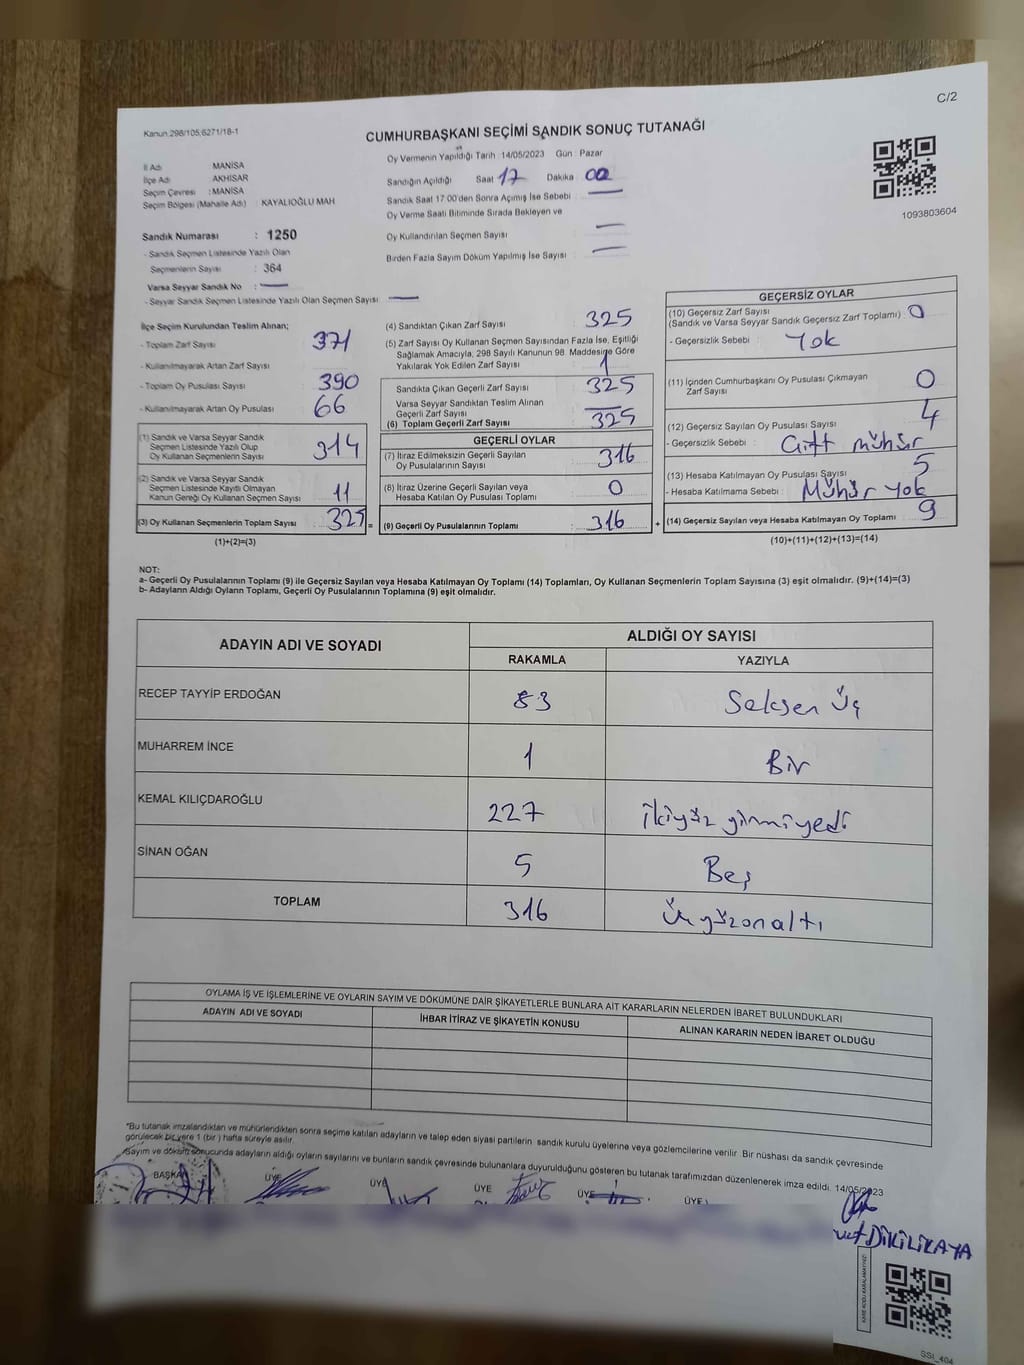 C/2
Kanun:298/105,6271/18-1
CUMHURBAŞKANI SEÇİMİ SANDIK SONUÇ TUTANAĞI
İl Adı MANİSA
İlçe Adı AKHİSAR
Seçim Çevresi : MANİSA
Seçim Bölgesi (Mahalle Adı) : KAYALIOĞLU MAH
Oy Vermenin Yapıldığı Tarih :14/05/2023 Gün : Pazar
Sandığın Açıldığı Saat 17 Dakika 00
Sandık Saat 17:00'den Sonra Açmış İse Sebebi : —
Oy Verme Saati Bitiminde Sırada Bekleyen ve
Oy Kullandırılan Seçmen Sayısı —
Birden Fazla Sayım Döküm Yapılmış İse Sayısı —
1093803604
Sandık Numarası : 1250
- Sandık Seçmen Listesinde Yazılı Olan
Seçmenlerin Sayısı : 364
Varsa Seyyar Sandık No : —
- Seyyar Sandık Seçmen Listesinde Yazılı Olan Seçmen Sayısı —
İlçe Seçim Kurulundan Teslim Alınan;
- Toplam Zarf Sayısı 371
- Kullanılmayarak Artan Zarf Sayısı
- Toplam Oy Pusulası Sayısı 390
- Kullanılmayarak Artan Oy Pusulası 66
(1) Sandık ve Varsa Seyyar Sandık
Seçmen Listesinde Yazılı Olup
Oy Kullanan Seçmenlerin Sayısı 314
(2) Sandık ve Varsa Seyyar Sandık
Seçmen Listesinde Kayıtlı Olmayan
Kanun Gereği Oy Kullanan Seçmen Sayısı 11
(3) Oy Kullanan Seçmenlerin Toplam Sayısı 325 =
(1)+(2)=(3)
(4) Sandıktan Çıkan Zarf Sayısı 325
(5) Zarf Sayısı Oy Kullanan Seçmen Sayısından Fazla İse, Eşitliği
Sağlamak Amacıyla, 298 Sayılı Kanunun 98. Maddesine Göre
Yakılarak Yok Edilen Zarf Sayısı 1
Sandıkta Çıkan Geçerli Zarf Sayısı 325
Varsa Seyyar Sandıktan Teslim Alınan
Geçerli Zarf Sayısı —
(6) Toplam Geçerli Zarf Sayısı 325
GEÇERLİ OYLAR
(7) İtiraz Edilmeksizin Geçerli Sayılan
Oy Pusulalarının Sayısı 316
(8) İtiraz Üzerine Geçerli Sayılan veya
Hesaba Katılan Oy Pusulası Toplamı 0
(9) Geçerli Oy Pusulalarının Toplamı 316 +
GEÇERSİZ OYLAR
(10) Geçersiz Zarf Sayısı
(Sandık ve Varsa Seyyar Sandık Geçersiz Zarf Toplamı) 0
- Geçersizlik Sebebi : Yok
(11) İçinden Cumhurbaşkanı Oy Pusulası Çıkmayan
Zarf Sayısı 0
(12) Geçersiz Sayılan Oy Pusulası Sayısı 4
- Geçersizlik Sebebi : Çift mühür
(13) Hesaba Katılmayan Oy Pusulası Sayısı 5
- Hesaba Katılmama Sebebi : Mühür yok
(14) Geçersiz Sayılan veya Hesaba Katılmayan Oy Toplamı 9
(10)+(11)+(12)+(13)=(14)
NOT:
a- Geçerli Oy Pusulalarının Toplamı (9) ile Geçersiz Sayılan veya Hesaba Katılmayan Oy Toplamı (14) Toplamları, Oy Kullanan Seçmenlerin Toplam Sayısına (3) eşit olmalıdır. (9)+(14)=(3)
b- Adayların Aldığı Oyların Toplamı, Geçerli Oy Pusulalarının Toplamına (9) eşit olmalıdır.
ADAYIN ADI VE SOYADI ALDIĞI OY SAYISI
RAKAMLA YAZIYLA
RECEP TAYYİP ERDOĞAN 83 Seksen Üç
MUHARREM İNCE 1 Bir
KEMAL KILIÇDAROĞLU 227 ikiyüz yirmiyedi
SİNAN OĞAN 5 Beş
TOPLAM 316 Üçyüzonaltı
OYLAMA İŞ VE İŞLEMLERİNE VE OYLARIN SAYIM VE DÖKÜMÜNE DAİR ŞİKAYETLERLE BUNLARA AİT KARARLARIN NELERDEN İBARET BULUNDUKLARI
ADAYIN ADI VE SOYADI İHBAR İTİRAZ VE ŞİKAYETİN KONUSU ALINAN KARARIN NEDEN İBARET OLDUĞU
*Bu tutanak imzalandıktan ve mühürlendikten sonra seçime katılan adayların ve talep eden siyasi partilerin sandık kurulu üyelerine veya gözlemcilerine verilir. Bir nüshası da sandık çevresinde
görülecek bir yere 1 (bir ) hafta süreyle asılır.
Sayım ve döküm sonucunda adayların aldığı oyların sayılarını ve bunların sandık çevresinde bulunanlara duyurulduğunu gösteren bu tutanak tarafımızdan düzenlenerek imza edildi. 14/05/2023
BAŞKAN ÜYE ÜYE ÜYE ÜYE ÜYE
DİKİLİKAYA
SSL_404